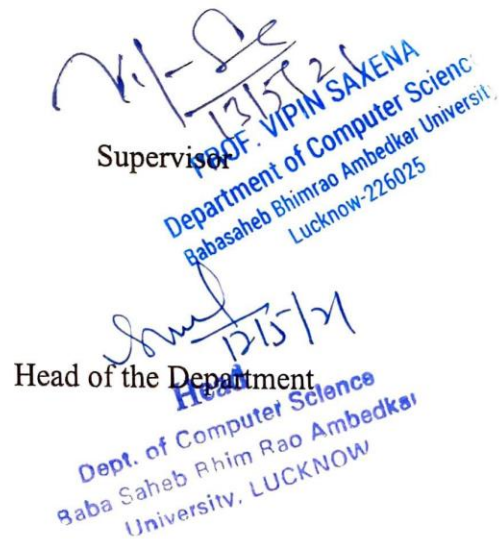 13/5/21
Supervisor
PROF. VIPIN SAXENA
Department of Computer Scienc
Babasaheb Bhimrao Ambedkar Universit
Lucknow-226025
12/5/21
Head of the Department
Head
Dept. of Computer Science
Baba Saheb Bhim Rao Ambedkar
University, LUCKNOW